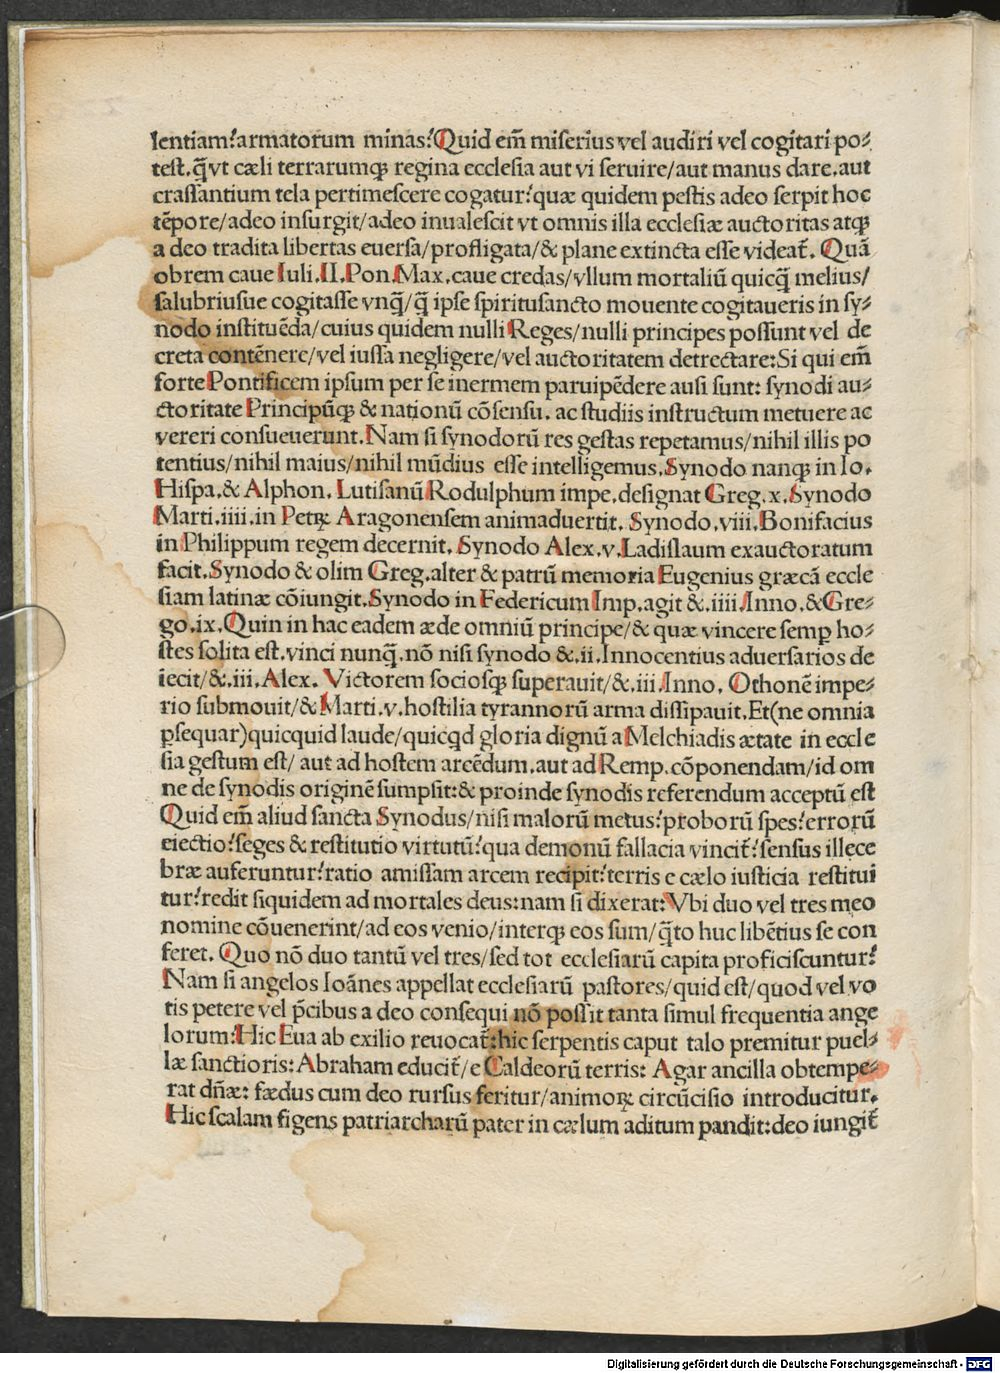 lentiam?armatorum minas?Quid em̄ miserius vel audiri vel cogitari po⸗
test.q̄vt cæli terrarumqꝫ regina ecclesia aut vi seruire/aut manus dare.aut
crassantium tela pertimescere cogatur?quæ quidem pestis adeo serpit hoc
tēpore/adeo insurgit/adeo inualescit vt omnis illa ecclesiæ auctoritas atqꝫ
a deo tradita libertas euersa/profligata/& plane extincta esse videat᷑. Quā
obrem caue Iuli.II.Pon.Max.caue credas/vllum mortaliū quicq̄ melius/
salubriusue cogitasse vnq̄/q̄ ipse spiritusancto mouente cogitaueris in sy⸗
nodo instituēda/cuius quidem nulli Reges/nulli principes possunt vel de
creta contēnere/vel iussa negligere/vel auctoritatem detrectare:Si qui em̄
forte Pontificem ipsum per se inermem paruipēdere ausi sunt: synodi au⸗
ctoritate Principūqꝫ & nationū cōsensu. ac studiis instructum metuere ac
vereri consueuerunt.Nam si synodorū res gestas repetamus/nihil illis po
tentius/nihil maius/nihil mūdius esse intelligemus.Synodo nanqꝫ in Io.
Hispa.& Alphon. Lutisanū Rodulphum impe.designat Greg.x.Synodo
Marti.iiii.in Petrꝝ Aragonensem animaduertit. Synodo.viii.Bonifacius
in Philippum regem decernit. Synodo Alex.v.Ladislaum exauctoratum
facit.Synodo & olim Greg.alter & patrū memoria Eugenius græcā eccle
siam latinæ cōiungit.Synodo in Federicum Imp.agit &.iiii Inno.& Gre⸗
go.ix.Quin in hac eadem æde omniū principe/& quæ vincere semꝑ ho⸗
stes solita est.vinci nunq̄.nō nisi synodo &.ii.Innocentius aduersarios de
iecit/&.iii.Alex. Victorem sociosqꝫ superauit/&.iii.Inno. Othonē impe⸗
rio submouit/& Marti.v.hostilia tyrannorū arma dissipauit.Et(ne omnia
ꝑsequar)quicquid laude/quicqd gloria dignū a Melchiadis ætate in eccle
sia gestum est/ aut ad hostem arcēdum.aut ad Remp.cōponendam/id om
ne de synodis originē sumpsit:& proinde synodis referendum acceptū est
Quid em̄ aliud sancta Synodus/nisi malorū metus?proborū spes?errorū
eiectio?seges & restitutio virtutū?qua demonū fallacia vincit᷑?sensus illece
bræ auferuntur?ratio amissam arcem recipit?terris e cælo iusticia restitui
tur?redit siquidem ad mortales deus:nam si dixerat:Vbi duo vel tres meo
nomine cōuenerint/ad eos venio/interqꝫ eos sum/q̄to huc libētius se con
feret. Quo nō duo tantū vel tres/sed tot ecclesiarū capita proficiscuntur?
Nam si angelos Ioānes appellat ecclesiarū pastores/quid est/quod vel vo
tis petere vel p̄cibus a deo consequi nō possit tanta simul frequentia ange
lorum?Hic Eua ab exilio reuocat᷑:hic serpentis caput talo premitur puel⸗
læ sanctioris: Abraham educit᷑/e Caldeorū terris: Agar ancilla obtempe⸗
rat dn̄æ: fædus cum deo rursus feritur/animoꝝ circūcisio introducitur.
Hic scalam figens patriarcharū pater in cælum aditum pandit:deo iungit᷑
Digitalisierung gefördert durch die Deutsche Forschungsgemeinschaft - DFG